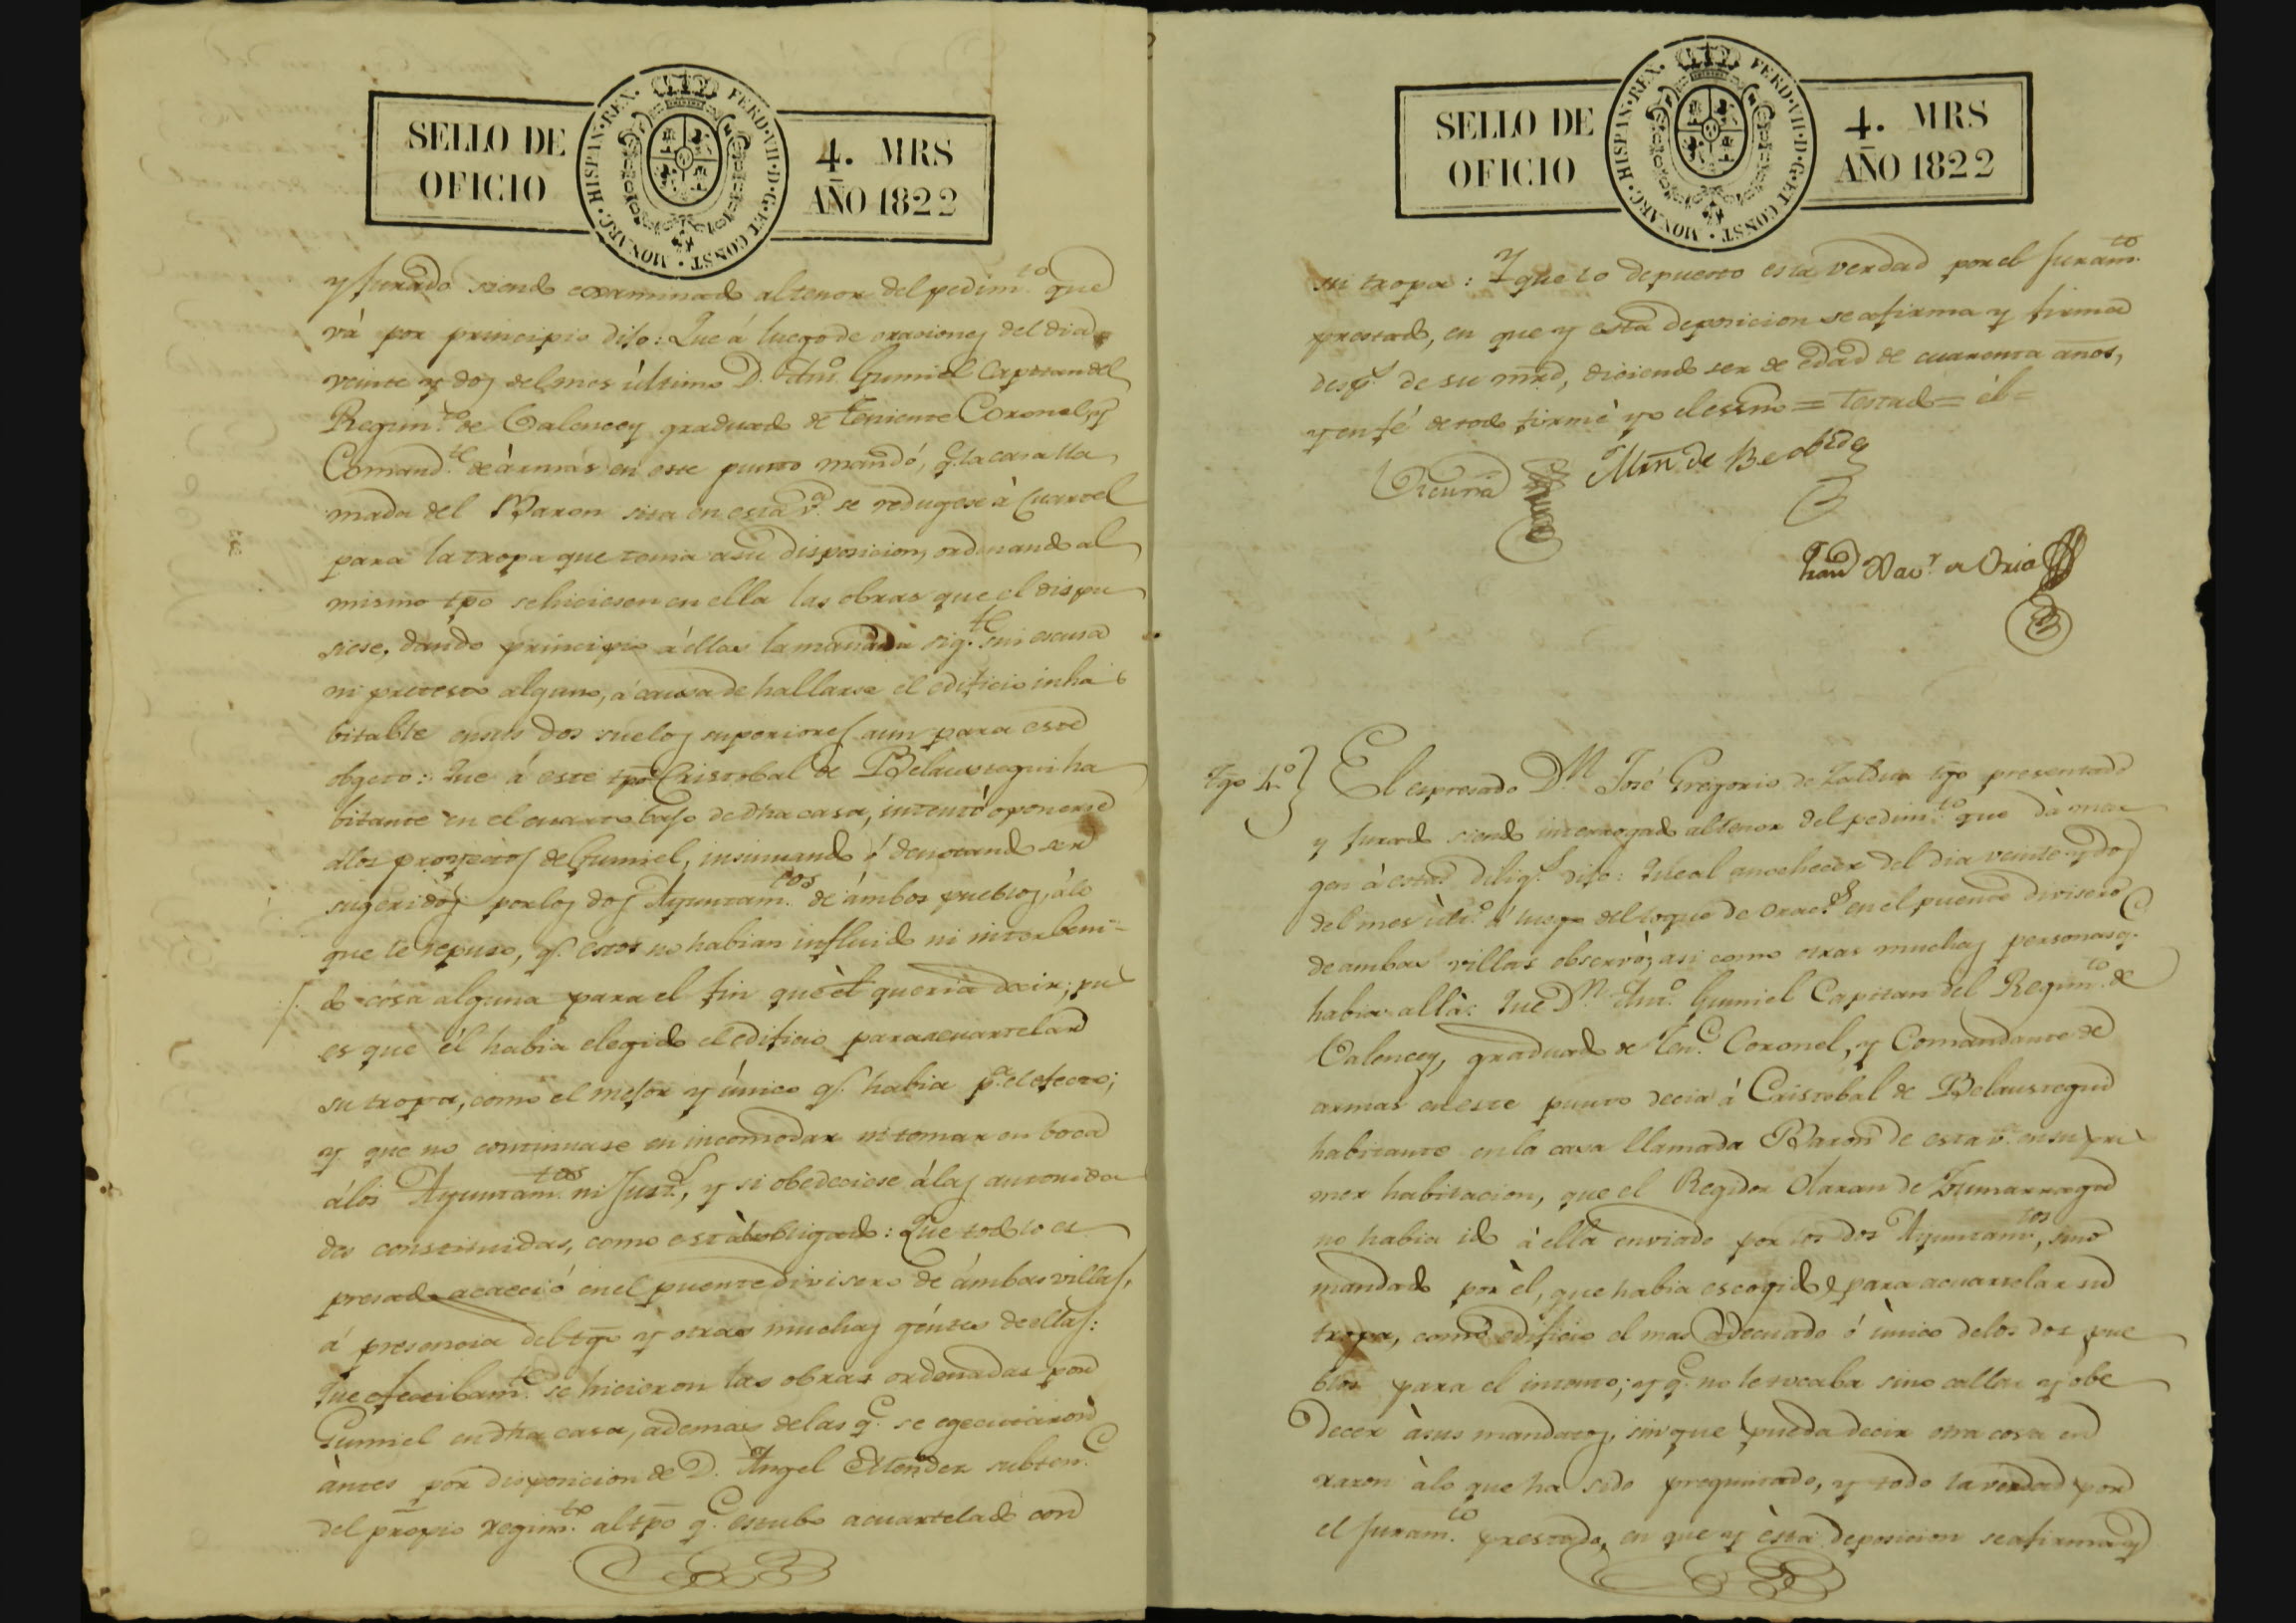 SELLO DE
OFICIO
HISPAN·REX. FERD·VII·D·G·ET CONST·MONARC·
4. MRS
AÑO 1822
y Jurado siendo examinado al tenor del pedim.to que
vá por principio dijo: Que á luego de oraciones del dia
veinte y dos del mes último D. Ant.o Gumiel Capitan del
Regim.to de Valencey graduado de teniente Coronel, y
Comand.te de ármas en este punto mandó, q.e la casa lla
mada del Baron sita en esta v.a se redugese à Cuartel
para la tropa que tenia a su disposicion, ordenando al
mismo tpo se hiciesen en ella las obras que el dispu
siese, dando principio á éllas la mañana sig.te sin escusa
ni pretesto alguno, á causa de hallarse el edificio inha
bitable en sus dos suelos superiores aun para este
obgeto: Que á este tpo Cristobal de Belaustegui ha
bitante en el cuarto bajo de dha casa, intentó oponerse
a los proyectos de Gumiel, insinuando ó denotando ser
sugeridos por los dos Ayuntam.tos de ámbos pueblos, á lo
que le repuso, q.e estos no habian influido ni interbeni-
do cosa alguna para el fin que èl queria decir; pu
es que él habia elegido el edificio para acuartelar
su tropa, como el mejor y único q.e habia p.a el efecto;
y que no continuase en incomodar ni tomar en boca
á los Ayuntam.tos ni Just.s, y si obedeciese á las autorida
des constituidas, como está obligado: Que todo lo es
presado acaeció en el puente divisero de ámbas villas,
á presencia del tgo y otras muchas géntes de ellas:
Que efectibam.te se hicieron las obras ordenadas por
Gumiel en dha casa, ademas de las q.e se egecutaron
àntes por disposicion de D. Angel Mendez subten.e
del propio regim.to al tpo q.e estubo acuartelado con
SELLO DE
OFICIO
HISPAN·REX. FERD·VII·D·G·ET CONST·MONARC·
4. MRS
AÑO 1822
su tropa: Y que lo depuesto es la verdad por el Juram.to
prestado, en que y esta deposicion se afirma y firma
desp.s de su mrd, diciendo ser de edad de cuarenta años,
y en fé de todo firmé yo el essno = Testado = él =
Vicuña
Mrn de Beobide
Fran.co Xav.r de Oria
Tgo 4.o } El espresado D.n José Gregorio de Zaldua tgo presentado
y Jurado siendo interrogado al tenor del pedim.to que dà mar
gen à estas dilig.s dijo: Que al anochecer del dia veinte y dos
del mes últ.o á luego del toque de orac.s en el puente divisero
de ambas villas observò, asi como otras muchas personas q.e
habia allà: Que D.n Ant.o Gumiel Capitan del Regim.to de
Valencey, graduado de Ten.e Coronel, y Comandante de
armas en este punto decia á Cristobal de Belaustegui
habitante en la casa llamada Baron de esta v.a en su pri
mer habitacion, que el Regidor Olaran de Zumarraga
no habia ido à ella enviado por los dos Ayuntam.tos, sino
mandado por èl, que habia escogido para acuartelar su
tropa, como edificio el mas adecuado ó ùnico de los dos pue
blos para el intento; y q.e no le tocaba sino callar y obe
decer à sus mandatos, sin que pueda decir otra cosa en
razon à lo que ha sido preguntado, y todo la verdad por
el Juram.to prestado, en que y èsta deposicion se afirma y